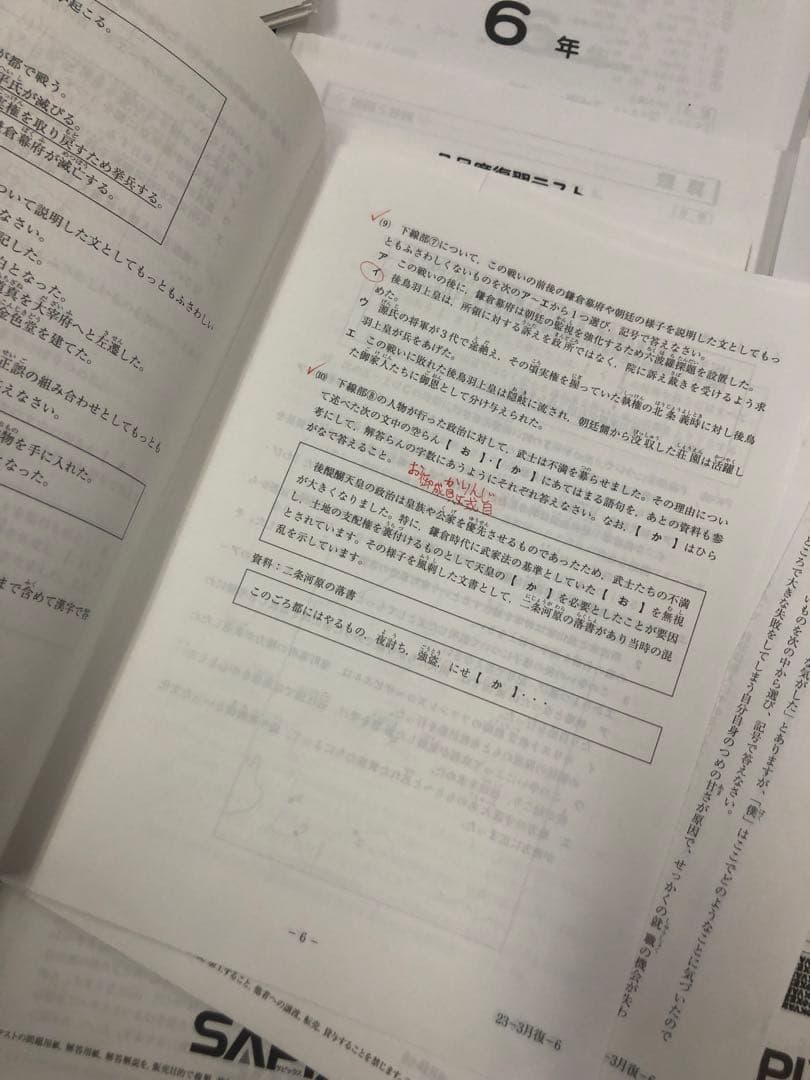 が起こる。
が都で戦う。
平氏が滅びる。
実権を取り戻すため挙兵する。
鎌倉幕府が滅亡する。
ついて説明した文としてもっともふさわしい
なさい。
記した。
白となった。
道真を大宰府へと左遷した。
金色堂を建てた。
正誤の組み合わせとしてもっとも
えなさい。
物を手に入れた。
くなった。
まで含めて漢字で答
6年
(9) 下線部⑦について，この戦いの前後の鎌倉幕府や朝廷の様子を説明した文としてもっ
ともふさわしくないものを次のア～エから1つ選び，記号で答えなさい。
ア この戦いの後に，鎌倉幕府は朝廷の監視を強化するため六波羅探題を設置した。
イ 後鳥羽上皇は，所領に対する訴えを政所ではなく，院に訴え裁きを受けるよう求
めた。
ウ 源氏の将軍が3代で途絶え，その頃実権を握っていた執権の北条義時に対し後鳥
羽上皇が兵をあげた。
エ この戦いに敗れた後鳥羽上皇は隠岐に流され，朝廷領から没収した荘園は活躍し
た御家人たちに御恩として分け与えられた。
(10) 下線部⑧の人物が行った政治に対して，武士は不満を募らせました。その理由につい
て述べた次の文中の空らん【 お 】・【 か 】にあてはまる語句を，あとの資料も参
考にして，解答らんの字数にあうようにそれぞれ答えなさい。なお，【 か 】はひら
がなで答えること。
お 御成敗式目
かりんじ
後醍醐天皇の政治は皇族や公家を優先させるものであったため，武士たちの不満
が大きくなりました。特に，鎌倉時代に武家法の基準としていた【 お 】を無視
し，土地の支配権を裏付けるものとして天皇の【 か 】を必要としたことが要因
とされています。その様子を風刺した文書として，二条河原の落書があり当時の混
乱を示しています。
資料：二条河原の落書
このごろ都にはやるもの，夜討ち，強盗，にせ【 か 】・・・
－6－
23-3月復-6
-3月復-6
いものを次の中から選び、記号で答えなさい。
ところで大きな失敗をしてしまう自分自身のつめの甘さが原因で、せっかくの就職の機会が失わ
サピックス